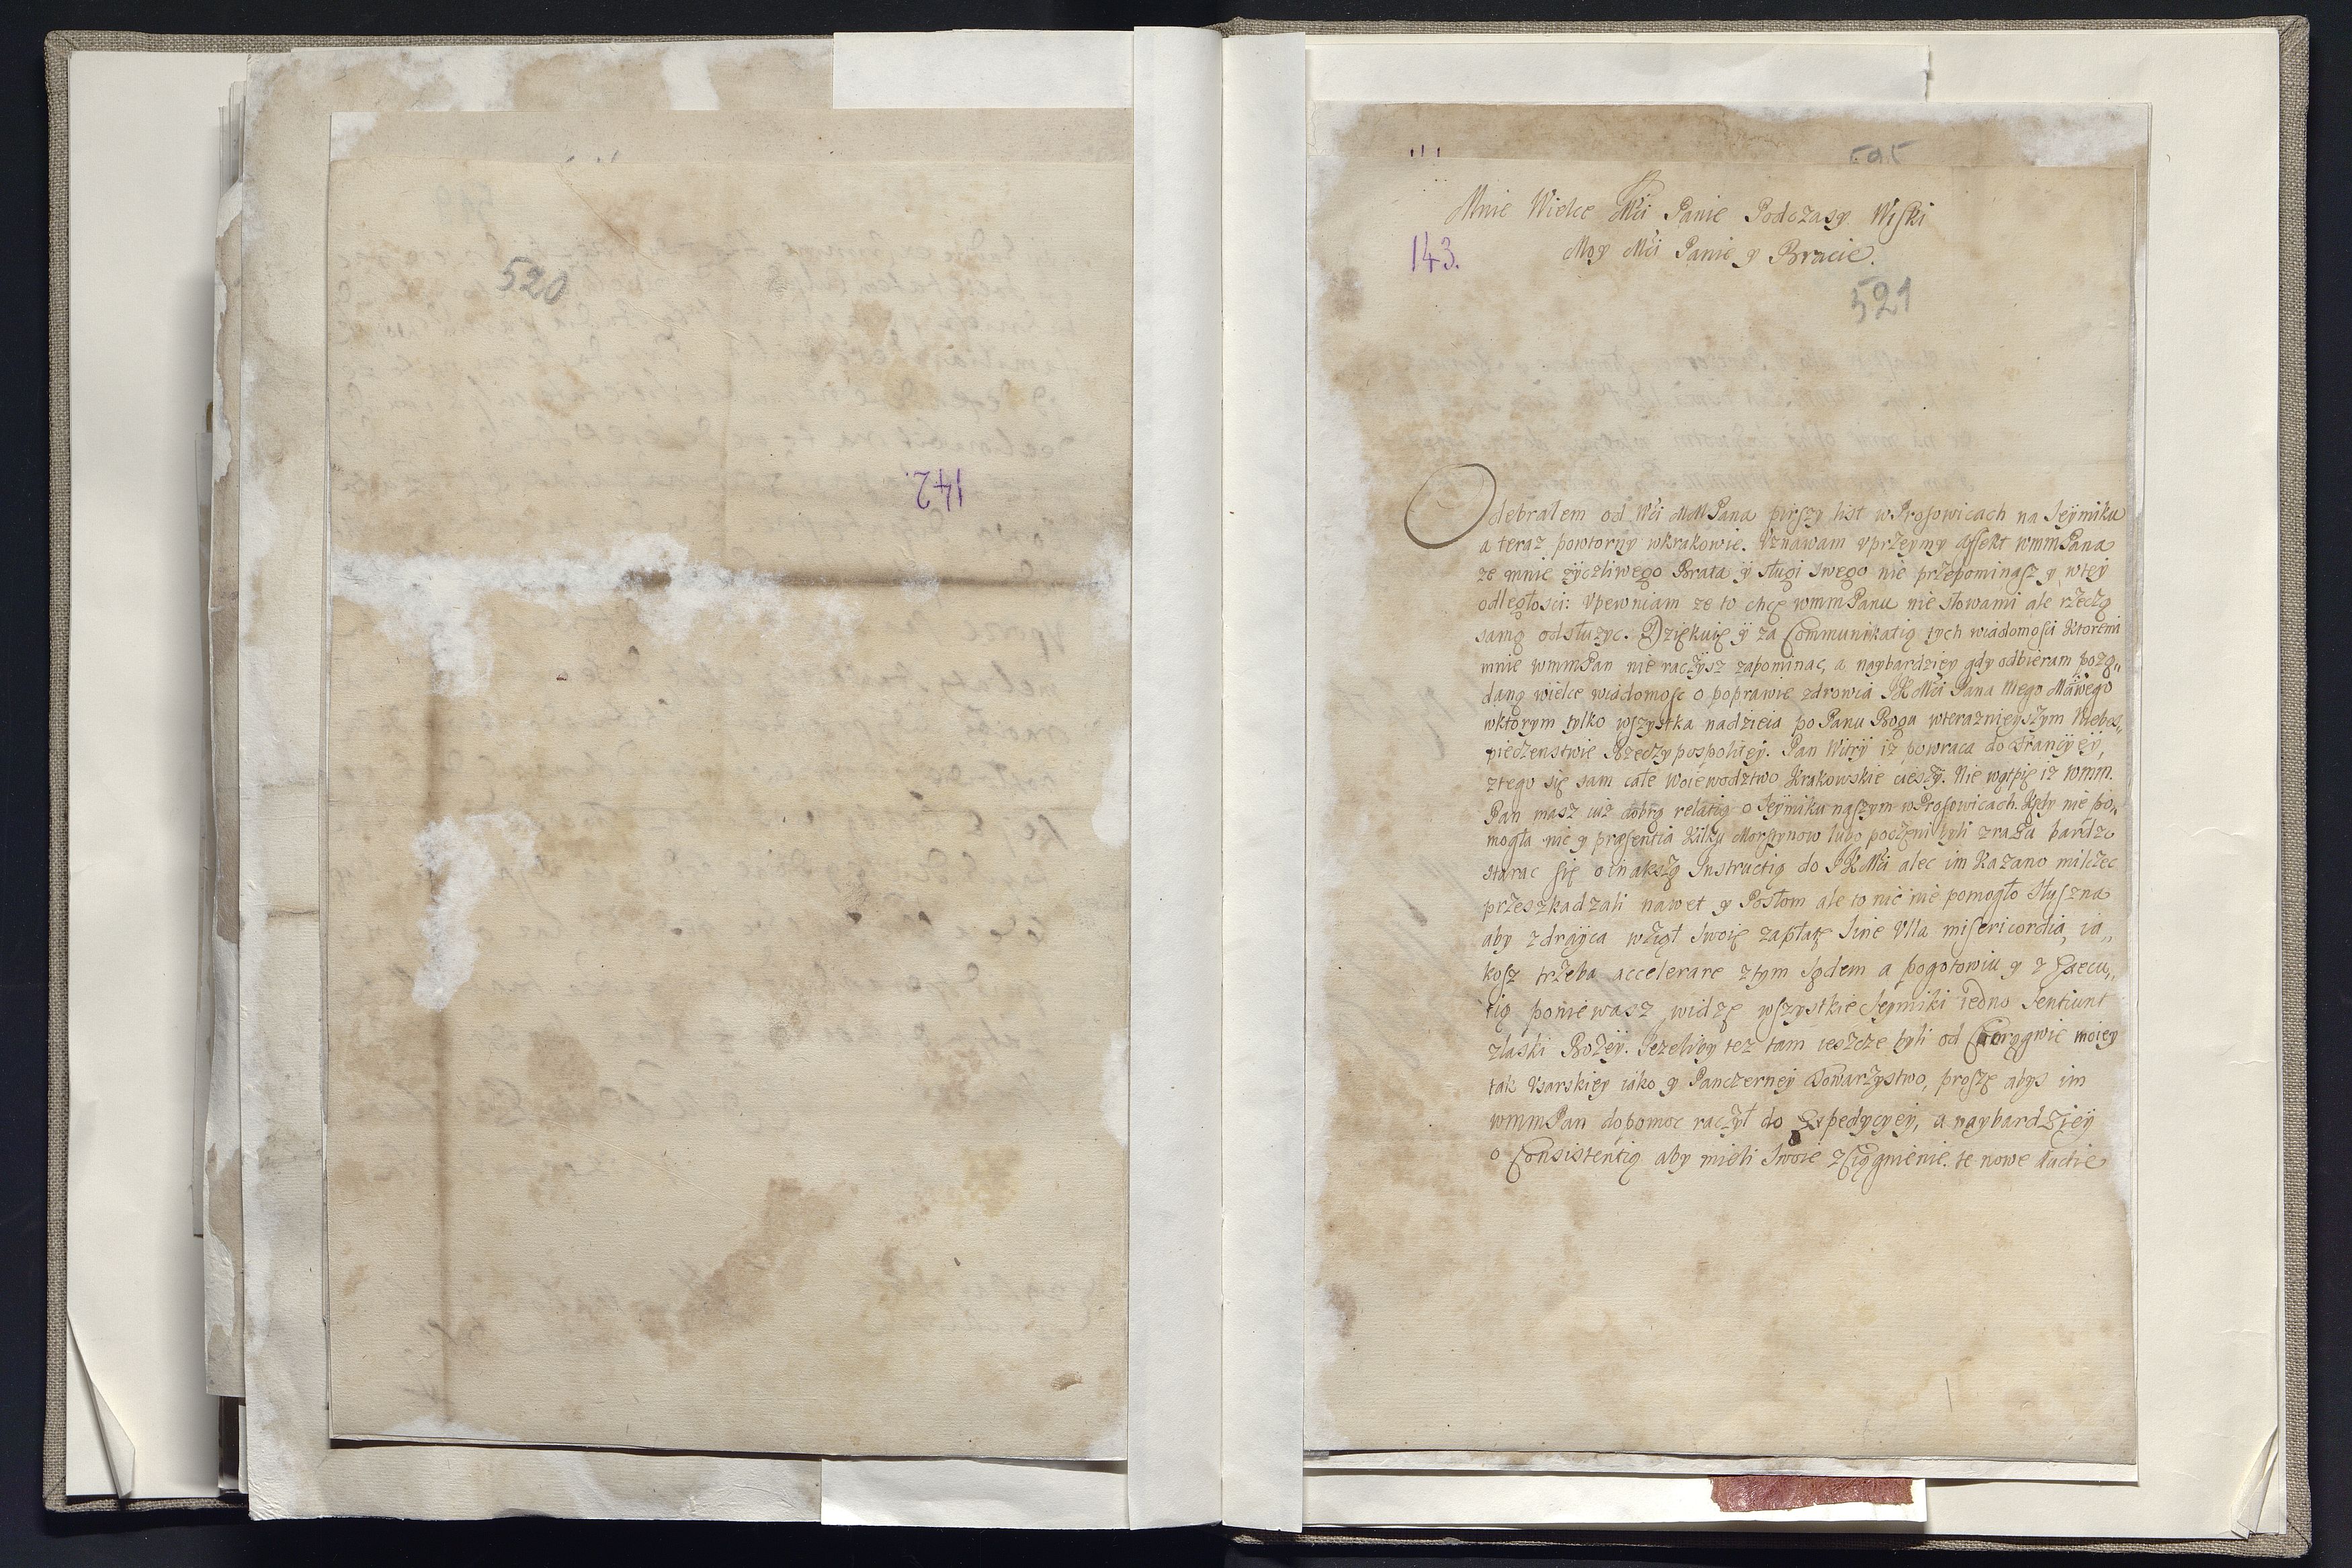 520
142.
595
Mnie Wielce Mći Panie Podczasy Wiski
143.
Moy Mći Panie y Bracie.
521
Odebrałem od Wći MMPana pirszy list w Prosowicach na Seÿmiku
a teraz powtorny wkrakowie. Uznawam uprzeymy affekt wmmPana
ze mnie zyczliwego Brata ÿ sługi swego nie przepominasz y wteÿ
odległosci: Upewniam ze to chcę wmmPanu nie słowami ale rzeczą
samą odsłuzyc. Dziękuię ÿ za Communikatią tych wiadomosci Ktoremi
mnie wmmPan nie raczysz zapominac, a naybardziey gdy odbieram pożą„
daną wielce wiadomosc o poprawie zdrowia JK Mći Pana mego Mẃego
wktorym tylko wszystka nadzieia po Panu Bogu wteraznieyszym Niebes„
pieczenstwie Rzeczypospolitey. Pan Witry iz powraca do Francÿeÿ,
ztego się sam całe Woiewodztwo Krakowskie cieszy. Nie wątpię iz wmm.
Pan masz iuż dobrą relatią o Seymiku naszym w Prosowicach. Kędy nie po„
mogła nic y præsentia Kilku Morsztynow lubo poczęni byli zrazu bardzo
starac się o inakszą Instructią do JKMći alec im Kazano milczec
przeszkadzali nawet y Posłom ale to nic nie pomogło Słuszna
aby zdrayca wziął swoię zapłatę sine ulla misericordia, ia„
kosz trzeba accelerare ztym Sądem a pogotowiu y z Exæcu„
tią poniewasz widzę wszystkie Seymiki iedno sentiunt
złaski Bożeÿ. Jezeliby tez tam ieszcze byli od Chorągwie moiey
tak Usarskiey iako y Panczerney Towarzystwo, proszę abys im
wmmPan dopomoc raczył do Expedycyey, a naybardzieÿ
o Consistentią aby mieli swoie zciągnienie. te nowe